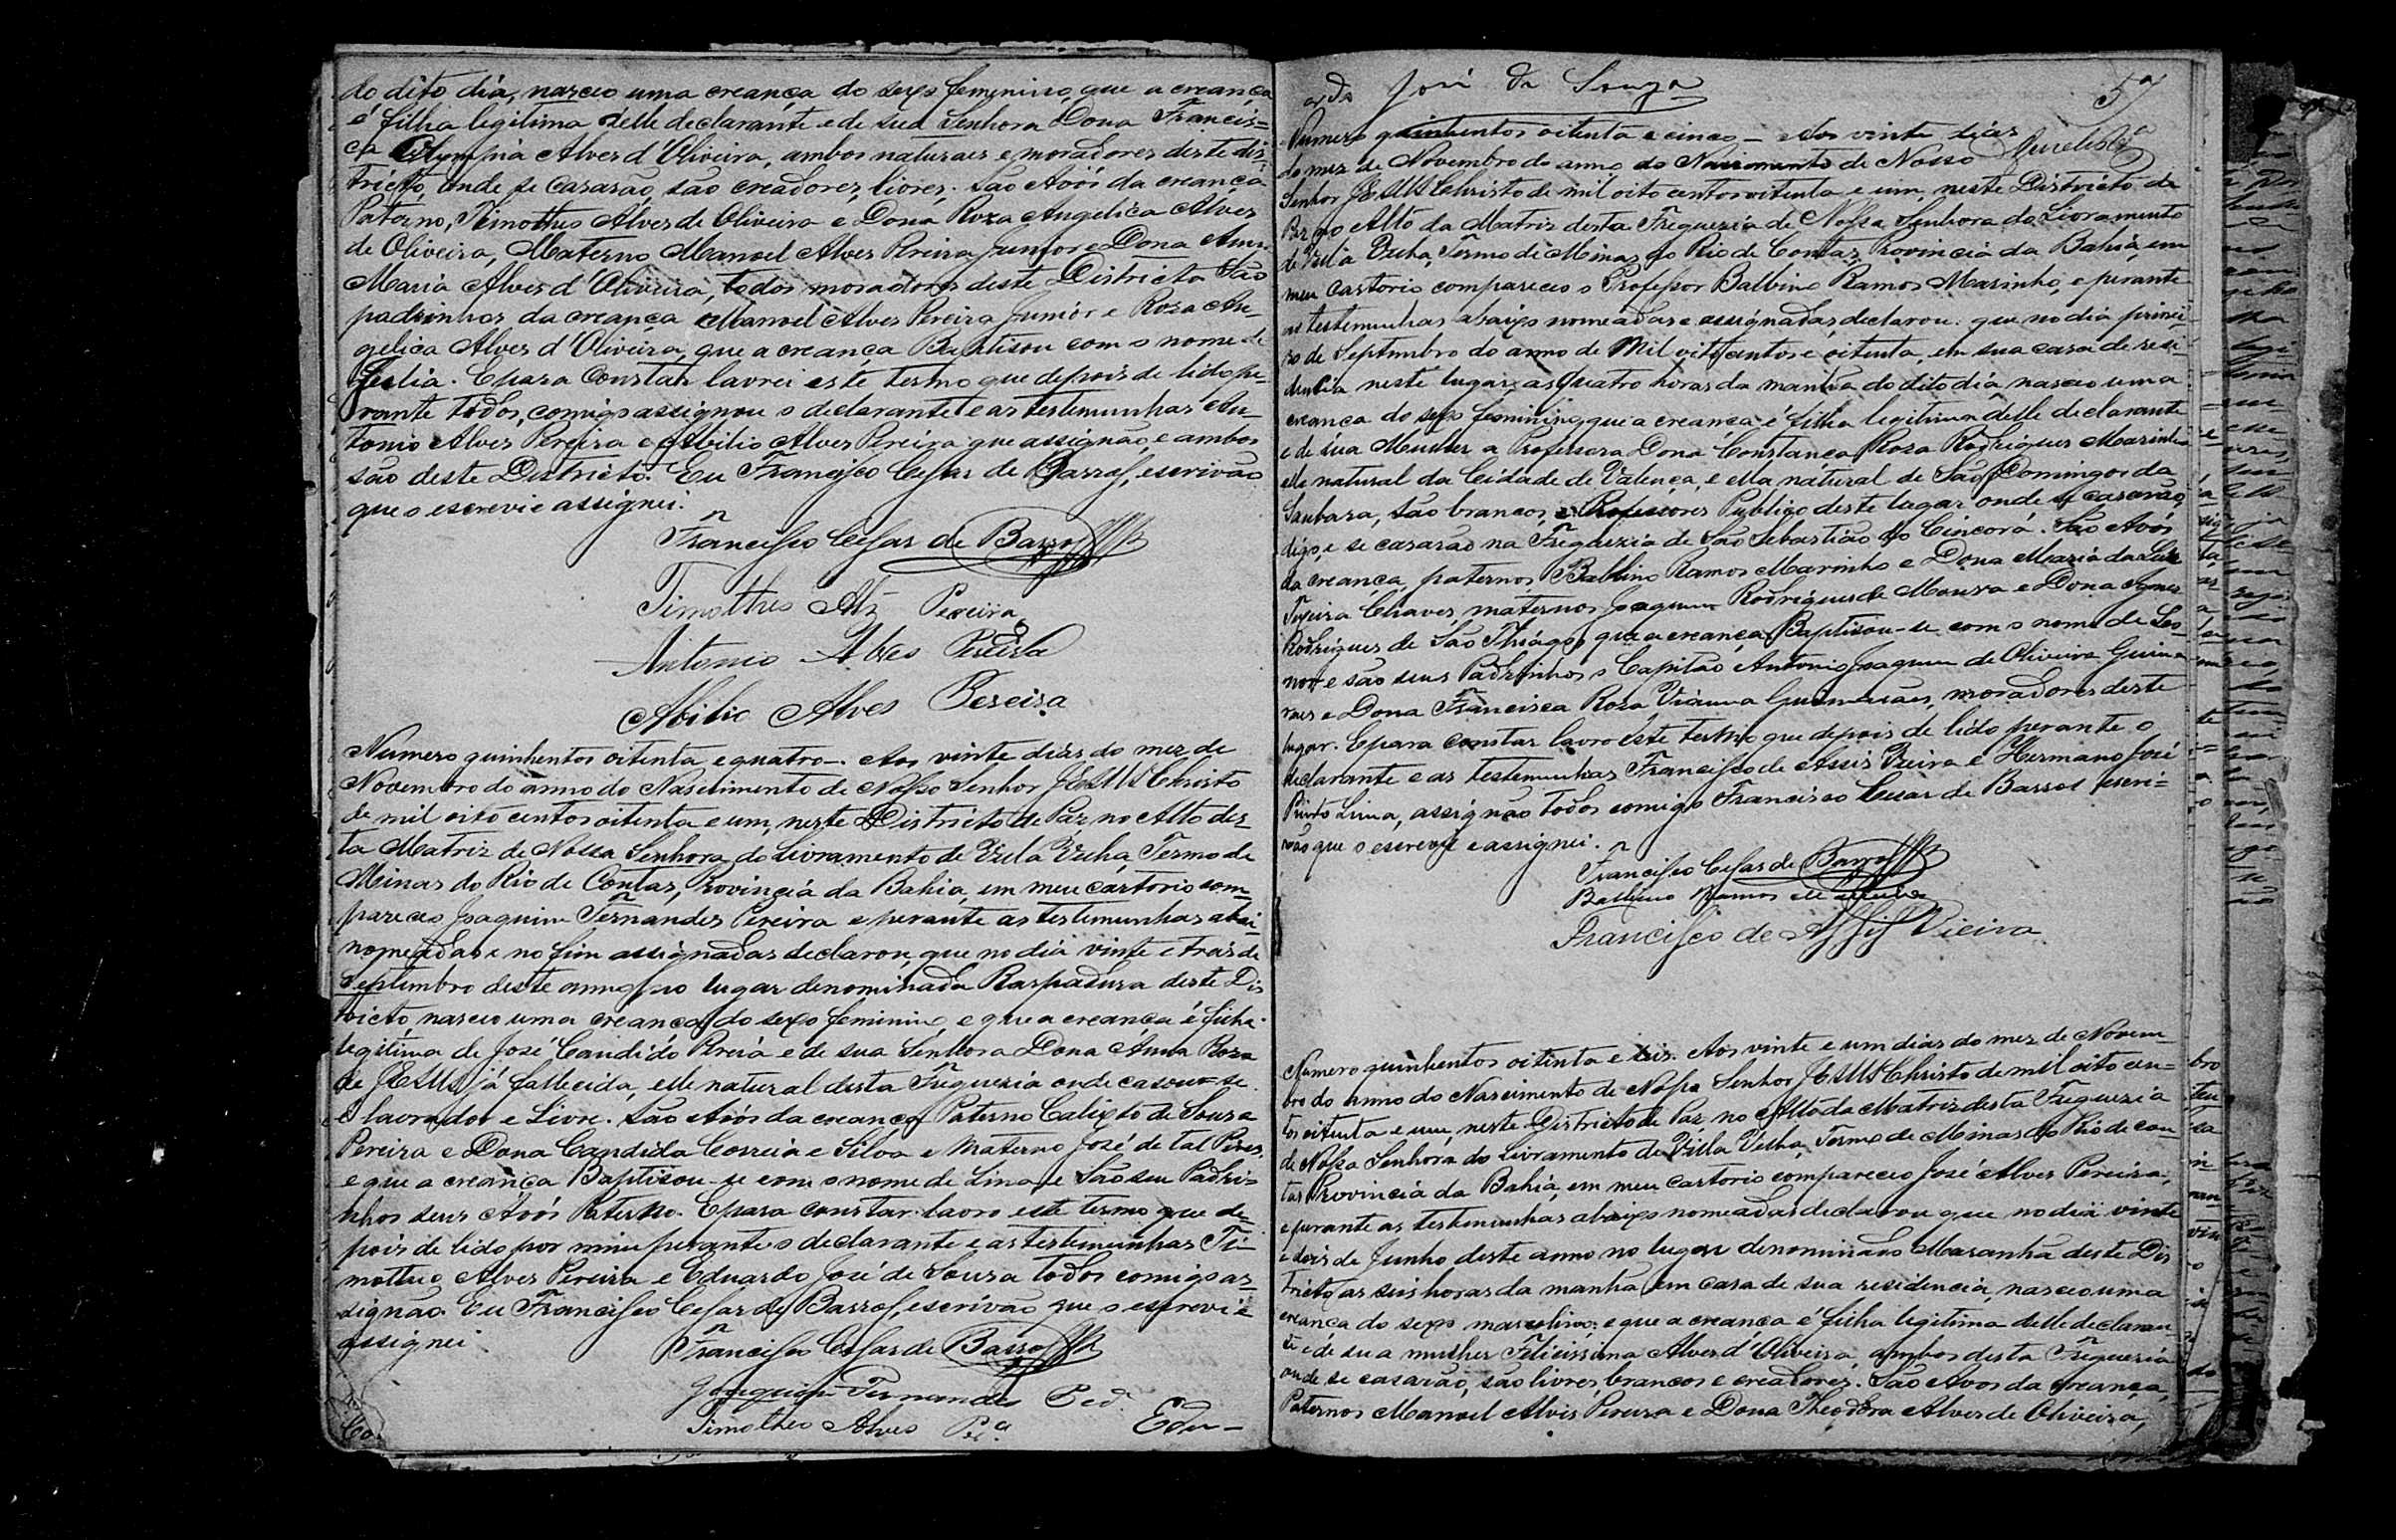 do dito dia, nasceo uma creança do sexo feminino, que a creança
é filha legitima delle declarante e de sua Senhora Dona Francis=
ca Olympia Alves d'Oliveira, ambos naturaes e moradores deste dis=
tricto, onde se casarão, são creadores, livres. São Avós da creança
Paterno, Timotheo Alves de Oliveira e Dona Roza Angelica Alves
de Oliveira, Materno Manoel Alves Pereira Junior e Dona Anna
Maria Alves d'Oliveira, todos moradores deste Districto São
padrinhos da creança Manoel Alves Pereira Junior e Roza An=
gelica Alves d'Oliveira, que a creança Baptisou com o nome de
. E para Constar lavrei este termo que depois de lido pe=
rante todos, comigo assignou o declarante e as testemunhas An=
tonio Alves Pereira e Abilio Alves Pereira que assignão, e ambos
são deste Districto. Eu Francisco Cesar de Barros, escrivão
que o escrevi e assignei.
Francisco Cesar de Barros
Timotheo Alz Pereira
Antonio Alves Pereira
Abilio Alves Pereira
Numero quinhentos oitenta e quatro. Aos vinte dias do mez de
Novembro do anno do Nascimento de Nosso Senhor JESUS Christo
de mil oito centos oitenta e um, neste Districto de Paz, no Alto des=
ta Matriz de Nossa Senhora do Livramento de Villa Velha, Termo de
Minas do Rio de Contas, Provincia da Bahia, em meu cartorio com=
pareceo Joaquim Fernandes Pereira e perante as testemunhas abai=
nomeadas e no fim assignadas declarou, que no dia vinte e tres de
Septembro deste anno no lugar denominada Raspadura deste Dis
tricto, nasceo uma creança do sexo feminino, e que a creança é filha
legitima de José Candido Pereira e de sua Senhora Dona Anna Roza
de JESUS já fallecida, elle natural desta Freguezia onde casou-se
é lavrador e Livre. São Avós da creança Paterno Calixto de Souza
Pereira e Dona Candida Correia e Silva e Materno José de tal Pires,
e que a creança Baptisou-se com o nome de Lina e São seu Padri=
nhos seus Avós Paterno. E para constar lavro este termo que de=
pois de lido por mim perante o declarante e as testemunhas Ti=
motheo Alves Pereira e Eduardo José de Souza todos comigo as=
signão. Eu Francisco Cesar de Barros, escrivão que o escrevi e
assignei.
Francisco Cesar de Barros
Joaquim Fernandes
Timotheo Alves Pra
Edu-
ardo José de Souza
57
Numero quinhentos oitenta e cinco - Aos vinte dias
do mez de Novembro do anno do Nascimento de Nosso
Senhor JESUS Christo de mil oito centos oitenta e um, neste Districto de
Paz no Alto da Matriz desta Freguezia de Nossa Senhora do Livramento
de Villa Velha, Termo de Minas do Rio de Contas, Provincia da Bahia, em
meu Cartorio compareceo o Professor Balbino Ramos Marinho, e perante
as testemunhas abaixo nomeadas e assignadas, declarou: que no dia primei=
ro de Septembro do anno de Mil oito centos e oitenta, em sua casa de resi=
dencia neste lugar, as Quatro horas da manhã do dito dia nasceo uma
creança do sexo feminino, que a creança é filha legitima delle declarante
e de sua Mulher a Professora Dona Constança Roza Rodrigues Marinho
elle natural da Cidade de Valença, e ella natural de São Domingos da
Saubara, são brancos, e Professores Publico deste lugar onde se casarão
digo, e se casarão na Freguezia de São Sebastião do Cincorá. São Avós
da creança, paternos Balbino Ramos Marinho e Dona Maria da Luz
Chaves, maternos Joaquim Rodrigues de Moura e Dona Agnes
Rodrigues de São Thiago, que a creança Baptisou-se com o nome de Leo=
nor e são seus Padrinhos o Capitão Antonio Joaquim de Oliveira Guima
raes e Dona Francisca Roza Vianna Guimarães, moradores deste
lugar. E para constar lavro este termo que depois de lido perante o
declarante e as testemunhas Francisco de Assis Vieira e Hermano José
Pinto Lima, assignão todos comigo Francisco Cesar de Barros escri=
vão que o escrevi e assignei.
Francisco Cesar de Barros
Balbino Ramos Marinho
Francisco de Assis Vieira
Numero quinhentos oitenta e seis. Aos vinte e um dias do mez de Novem=
bro do anno do Nascimento de Nosso Senhor JESUS Christo de mil oito cen=
tos oitenta e um, neste Districto de Paz, no Alto da Matriz desta Freguezia
de Nossa Senhora do Livramento de Villa Velha, Termo de Minas do Rio de Con=
tas Provincia da Bahia, em meu cartorio compareceo José Alves Pereira,
e perante as testemunhas abaixo nomeadas declarou que no dia vinte
e dois de Junho deste anno no lugar denominado Maranhã deste Dis
tricto, as seis horas da manhã em casa de sua residencia, nasceo uma
creança do sexo masculino, e que a creança é filha legitima delle declaran
te e de sua mulher Felicissima Alves d'Oliveira, ambos desta Freguezia
onde se casarão, são livres, brancos e creadores. São Avos da creança,
Paternos Manoel Alves Pereira e Dona Theodora Alves de Oliveira,